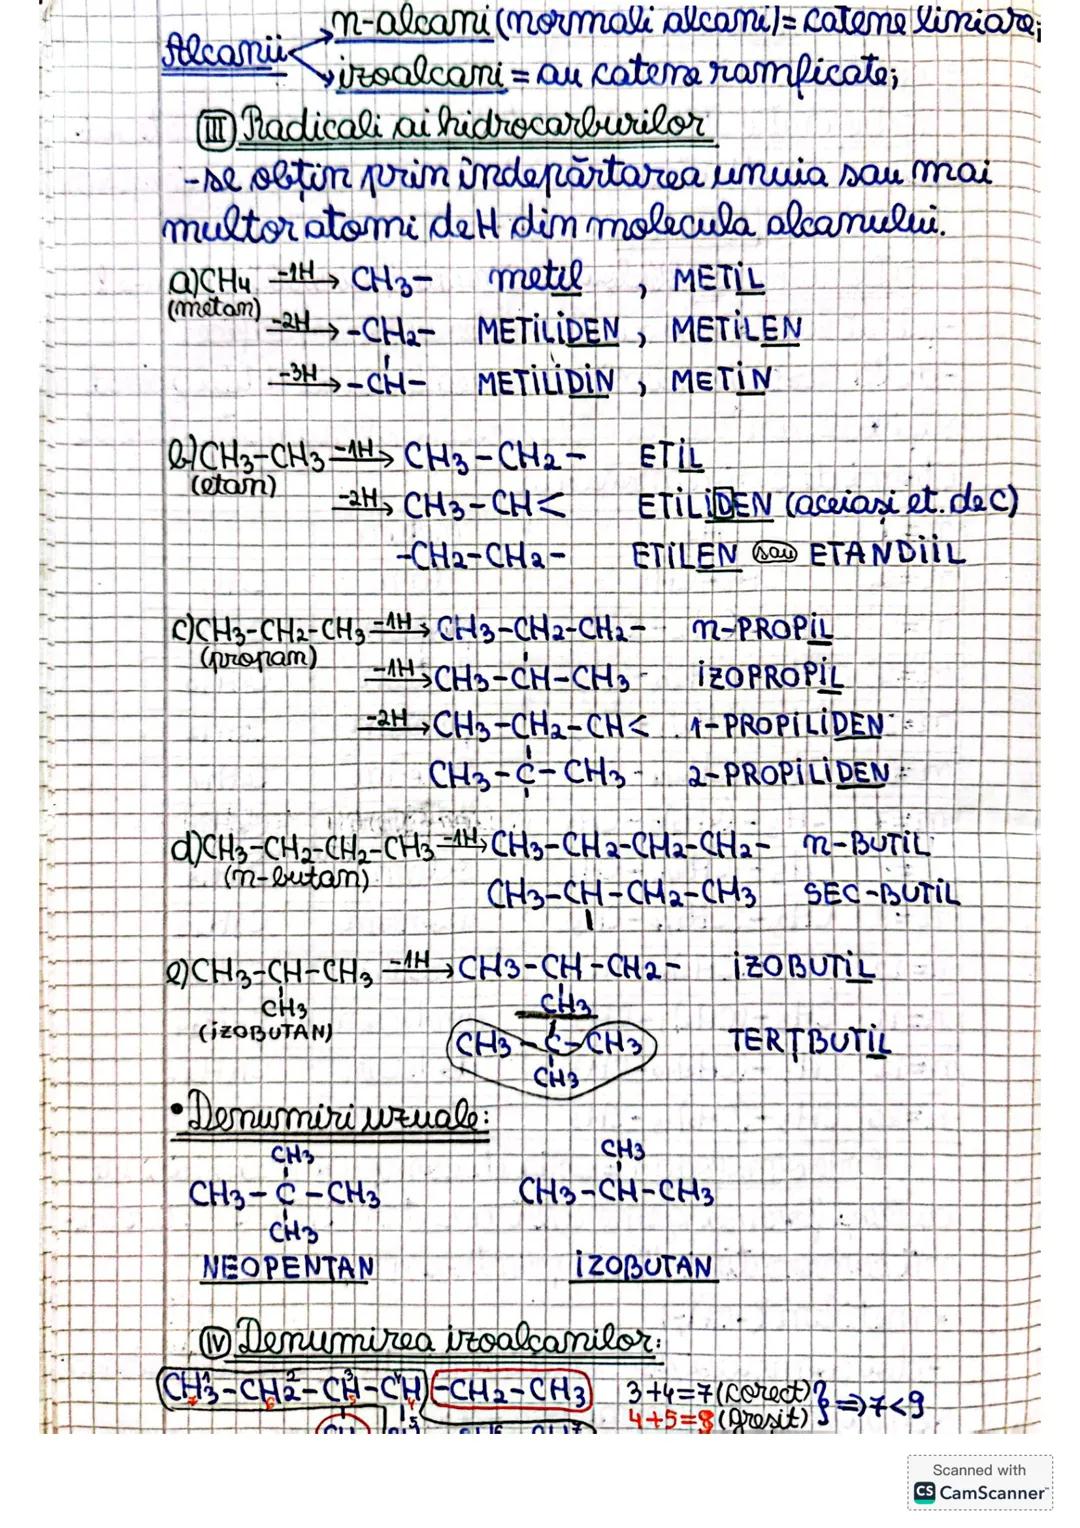 Alcanii
n-alcani (normali alcani) = catene liniare;
izoalcani = au catene ramficate;
III Radicali ai hidrocarburilor
-se obțin prin îndepărtarea unuia sau mai
multor atomi de H din molecula alcanului.
a) CH4 -1H→ CH3- metil , METIL
(metan)
-2H→ -CH2- METILIDEN , METILEN
-3H→ -CH- METILIDIN , METIN
b) CH3-CH3 -1H→ CH3-CH2- ETIL
(etan)
-2H→ CH3-CH< ETILIDEN (aceiași et. de C)
-CH2-CH2- ETILEN sau ETANDIIL
c) CH3-CH2-CH3 -1H→ CH3-CH2-CH2- n-PROPIL
(propan)
-1H→ CH3-CH-CH3 IZOPROPIL
-2H→ CH3-CH2-CH< 1-PROPILIDEN
CH3-C-CH3 2-PROPILIDEN
d) CH3-CH2-CH2-CH3 -1H→ CH3-CH2-CH2-CH2- n-BUTIL
(n-butan)
CH3-CH-CH2-CH3 SEC-BUTIL
e) CH3-CH-CH3 -1H→ CH3-CH-CH2- IZOBUTIL
CH3 CH3
(IZOBUTAN)
CH3-C-CH3 TERȚBUTIL
CH3
• Denumiri uzuale:
CH3 CH3
CH3-C-CH3 CH3-CH-CH3
CH3
NEOPENTAN IZOBUTAN
IV Denumirea izoalcanilor:
CH3-CH2-CH-CH-CH2-CH3 3+4=7 (corect) } => 7<9
4+5=9 (greșit)
Scanned with
CS CamScanner